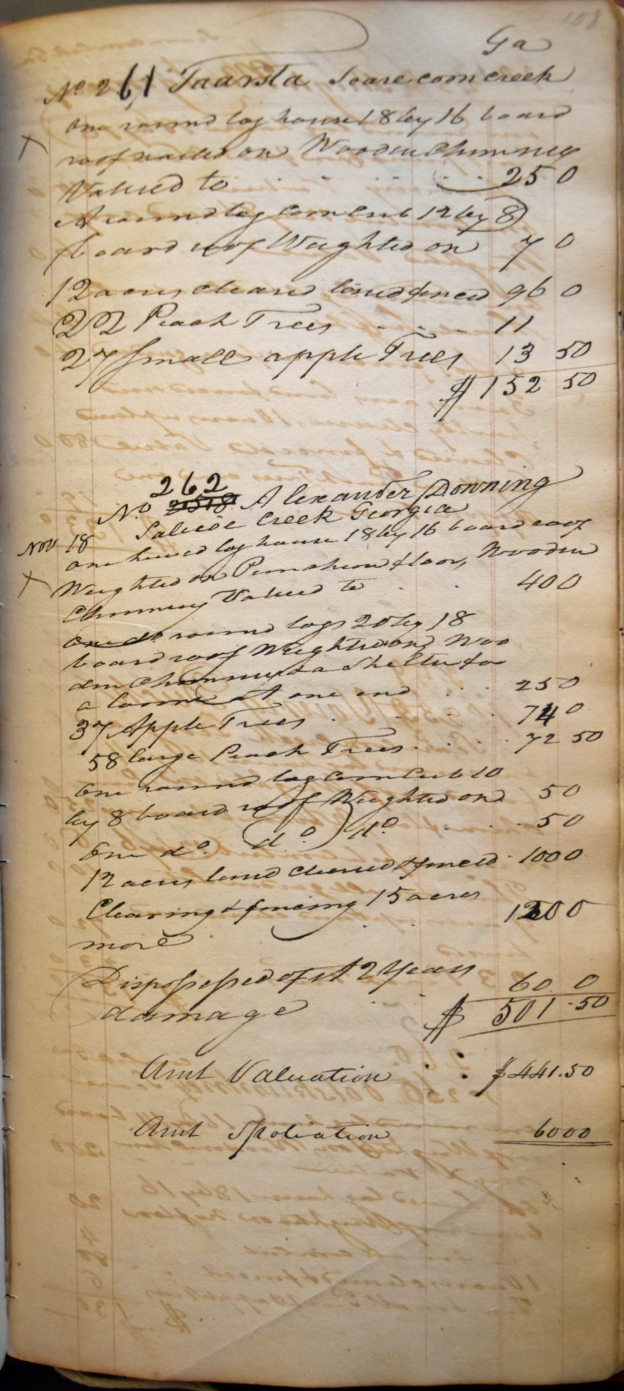 158
Ga
No 261 Taarsta Scarecorn creek
One round log house 18 by 16 board
roof nailed on Wooden Chimney
Valued to 25 0
A round log corn Crib 12 by 8
board roof Weighted on 7 0
12 acres cleared land fenced 96 0
22 Peach Trees 11
27 Small apple Trees 13 50
$152 50
262
No 2518 Alexander Downing
Nov 18 Creek Georgia
one hewed log house 18 by 16 board roof
Weighted on Puncheon floor, Wooden
Chimney Valued to 40 0
one do round logs 20 by 18
board roof Weighted on Woo
den Chimney & a Shelter for
a loom at one end 25 0
37 Apple Trees 74 0
58 large Peach Trees 72 50
One round log Corn Crib 10
by 8 board roof Weighted on 5 0
One do do do 5 0
12 acres land cleared & fenced 100 0
Clearing & fencing 15 acres
more 120 0
Dispossessed of it 2 Years
damage 60 0
$ 501.50
Amt Valuation $441.50
Amt Spoliation 60 00